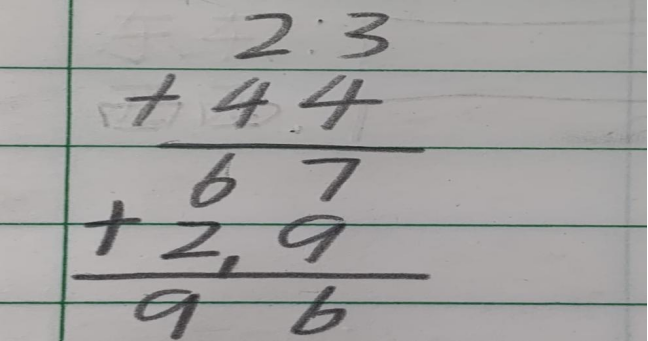 2.3
+ 4.4
6 7
+ 2,9
9 6